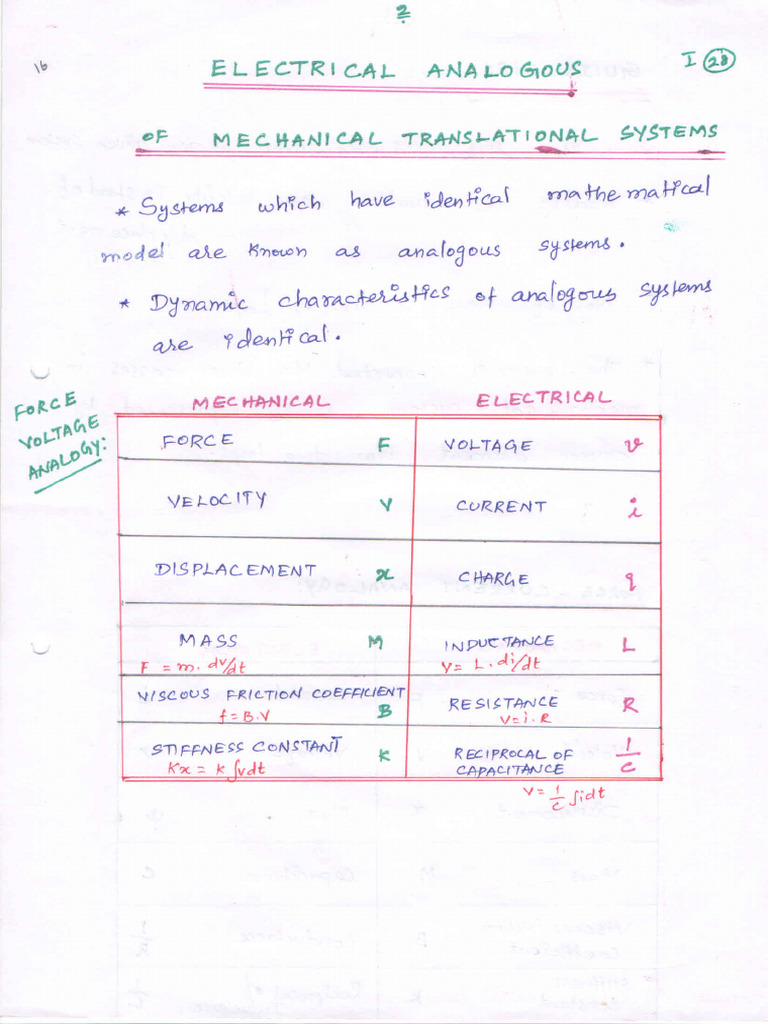 2
16
I 28
ELECTRICAL ANALOGOUS
OF MECHANICAL TRANSLATIONAL SYSTEMS
* Systems which have identical mathematical
model are known as analogous systems.
* Dynamic characteristics of analogous systems
are identical.
FORCE
VOLTAGE
ANALOGY:
MECHANICAL ELECTRICAL
FORCE F VOLTAGE v
VELOCITY V CURRENT i
DISPLACEMENT x CHARGE q
MASS M INDUCTANCE L
F = m. dv/dt V = L. di/dt
VISCOUS FRICTION COEFFICIENT
B RESISTANCE R
f = B.V V = i.R
STIFFNESS CONSTANT K RECIPROCAL OF 1/C
CAPACITANCE
Kx = K ∫vdt
V = 1/C ∫idt